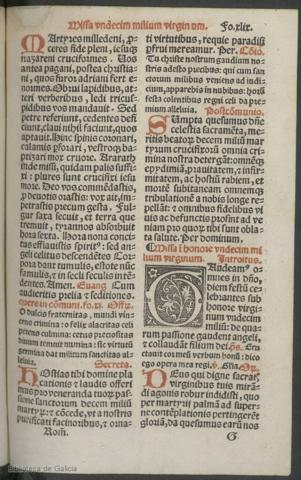 Missa vndecim milium virginum. Fo.xlix.
Martyres milledeni, p
ceres fide pleni, iesuq
nazareni cruciformes. Uos
antea pagani, postea christia
ni, quos furor adriani fert e
normes. Obrui lapidibus, at
teri verberibus, ledi tricus
pidibus vos mandauit. Sed
petre referiunt, cedentes defi
ciunt, claui nihil faciunt, quos
aptauit. Hinc spinis coronari,
calamis profoari, vestroq ba
ptizari mox cruore. Ararath
tide missi, quidam palis suffi
xi: plures sunt crucifixi iesu
more. Deo vos commendastis,
pro deuotis orastis: vox ait, im
petrastis precum gesta. Ful
gur saxa secuit, et terra que
tremuit, tyrannos absorbuit
hora sexta. Hora nona conci
tus efflauistis spiritus: sed an
geli celitus descendentes. Cor
pora dant tumulis, estote nunc
famulis, in secli seculis inten
dentes. Amen. Euang. Cum
audieritis prelia et seditiones.
O dulcis fraternitas, mundi vin
cens crimina: o felix alacritas celi
petens culmina: cetus preciositas
ditauit sanctitas al
lelentis.
Secreta.
Hostias tibi domine pla
cationis et laudis offeri
mus pro veneranda tuorum pas
sione sanctorum decem milium
martyrum: et concede, vt a nostris
purificati facinoribus, et orna
Rom.
ti virtutibus, requie paradisi
perfrui mereamur. Per. Cōio.
Tu christe nostrum gaudium no
stris adesto precibus: qui cum san
ctorum milibus veniens ad iudi
cium, apparebis in nubibus: horum
festa colentibus regni celi da pre
mium alleluia. Postcōmunio.
Sumpta quesumus domine
celestia sacramenta, me
ritis beatorum decem milium mar
tyrum crucifixorum omnia cri
mina nostra detergat: omnemque
eorum dimicatio prauitatem, et infir
mitatem, ac hostium rabiem, et
morte subitaneam omnemque
tribulationem a nobis longe re
pellat: et omnibus fidelibus vi
uis ac defunctis prosint ad ve
niam pro quorum tibi sunt obla
ta salute. Per dominum
Missa in honore vndecim mi
lium virginum. Introitus.
Gaudeam
omnes in dño,
diem festum ce
lebrantes sub
honore virgi
num vndecim
milium: de qua
rum passione gaudent angeli,
et collaudat filium dei. Ps. Eru
ctauit cor meum verbum bonum: dico
ego opera mea regi. Gľia. Or.
Deus qui digne sacrarum
virginibus tuis miran
di agonis robur indidisti, quo
per martyrii palmam ad supe
ne contemplationis pertingerent
gloriam, da quesumus earum nos
G
Biblioteca de Galicia